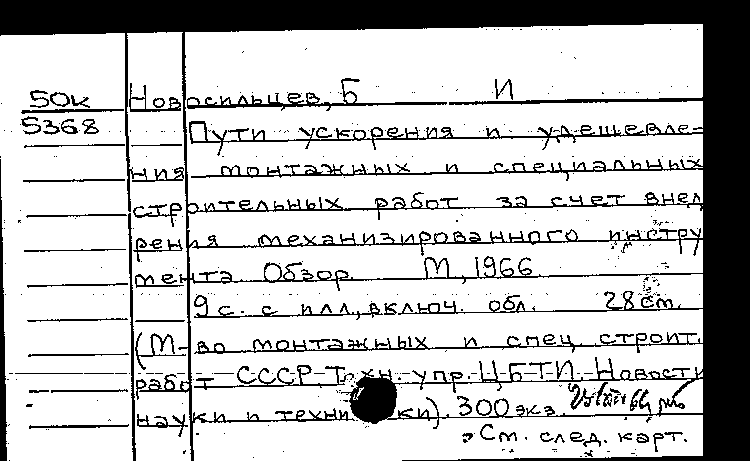 50к Новосильцев, Б И
5368 Пути ускорения и удешевле-
ния монтажных и специальных
строительных работ за счет внед
рения механизированного инстру
мента Обзор. М., 1966
9 с. с илл., включ. обл. 28 см.
(М-во монтажных и спец. строит.
работ СССР. Техн. упр. ЦБТИ. Новости
науки и техники). 300 экз.
См. след. карт.